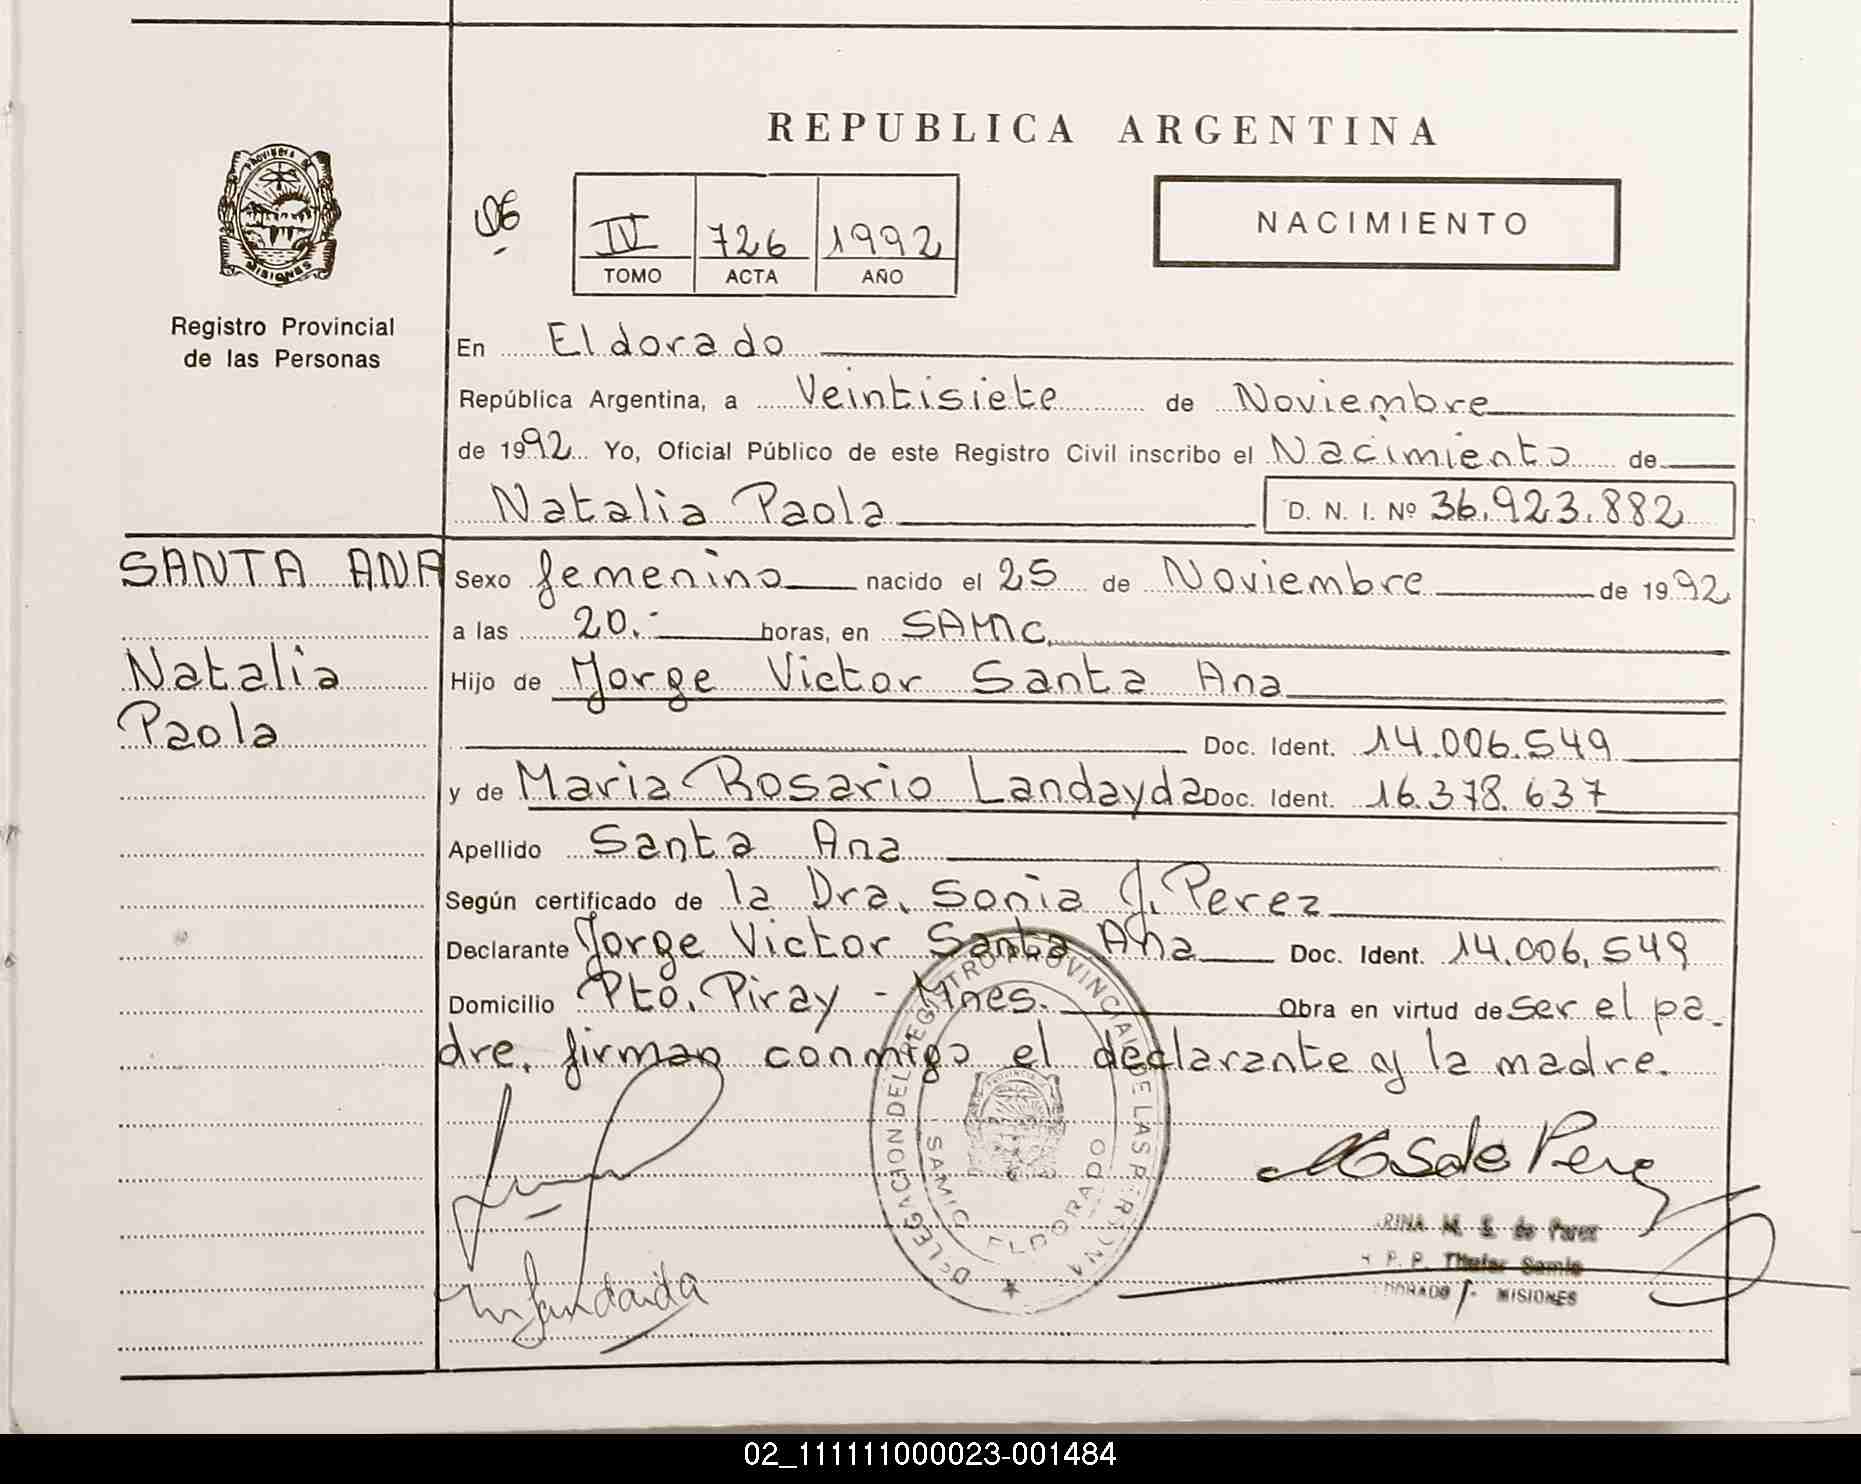 REPUBLICA ARGENTINA
PROVINCIA DE
MISIONES
Registro Provincial
de las Personas
IV 726 1992
TOMO ACTA AÑO
NACIMIENTO
En Eldorado
República Argentina, a Veintisiete de Noviembre
de 1992 Yo, Oficial Público de este Registro Civil inscribo el Nacimiento de
Natalia Paola D. N. I. Nº 36.923.882
SANTA ANA
Natalia
Paola
Sexo femenino nacido el 25 de Noviembre de 1992
a las 20.- horas, en SAMIC.
Hijo de Jorge Victor Santa Ana
Doc. Ident. 14.006.549
y de Maria Rosario Landayda Doc. Ident. 16.378.637
Apellido Santa Ana
Según certificado de la Dra. Sonia J. Perez
Declarante Jorge Victor Santa Ana Doc. Ident. 14.006.549
Domicilio Pto. Piray - Mnes. Obra en virtud de ser el pa-
dre. firman conmigo el declarante y la madre.
DELEGACION DEL REGISTRO PROVINCIAL DE LAS PERSONAS
SAMIC ELDORADO
PROVINCIA
M. S. de Perez
Titular Samic
MISIONES
02_111111000023-001484